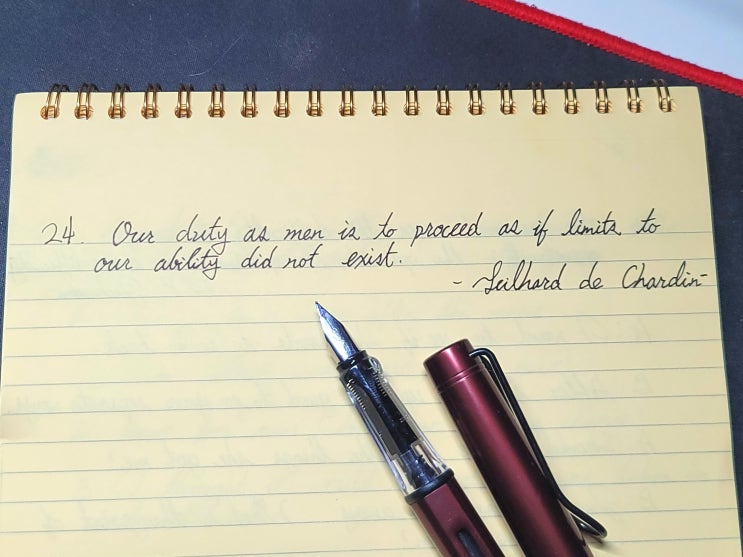 24. Our duty as men is to proceed as if limits to
our ability did not exist.
- Teilhard de Chardin-